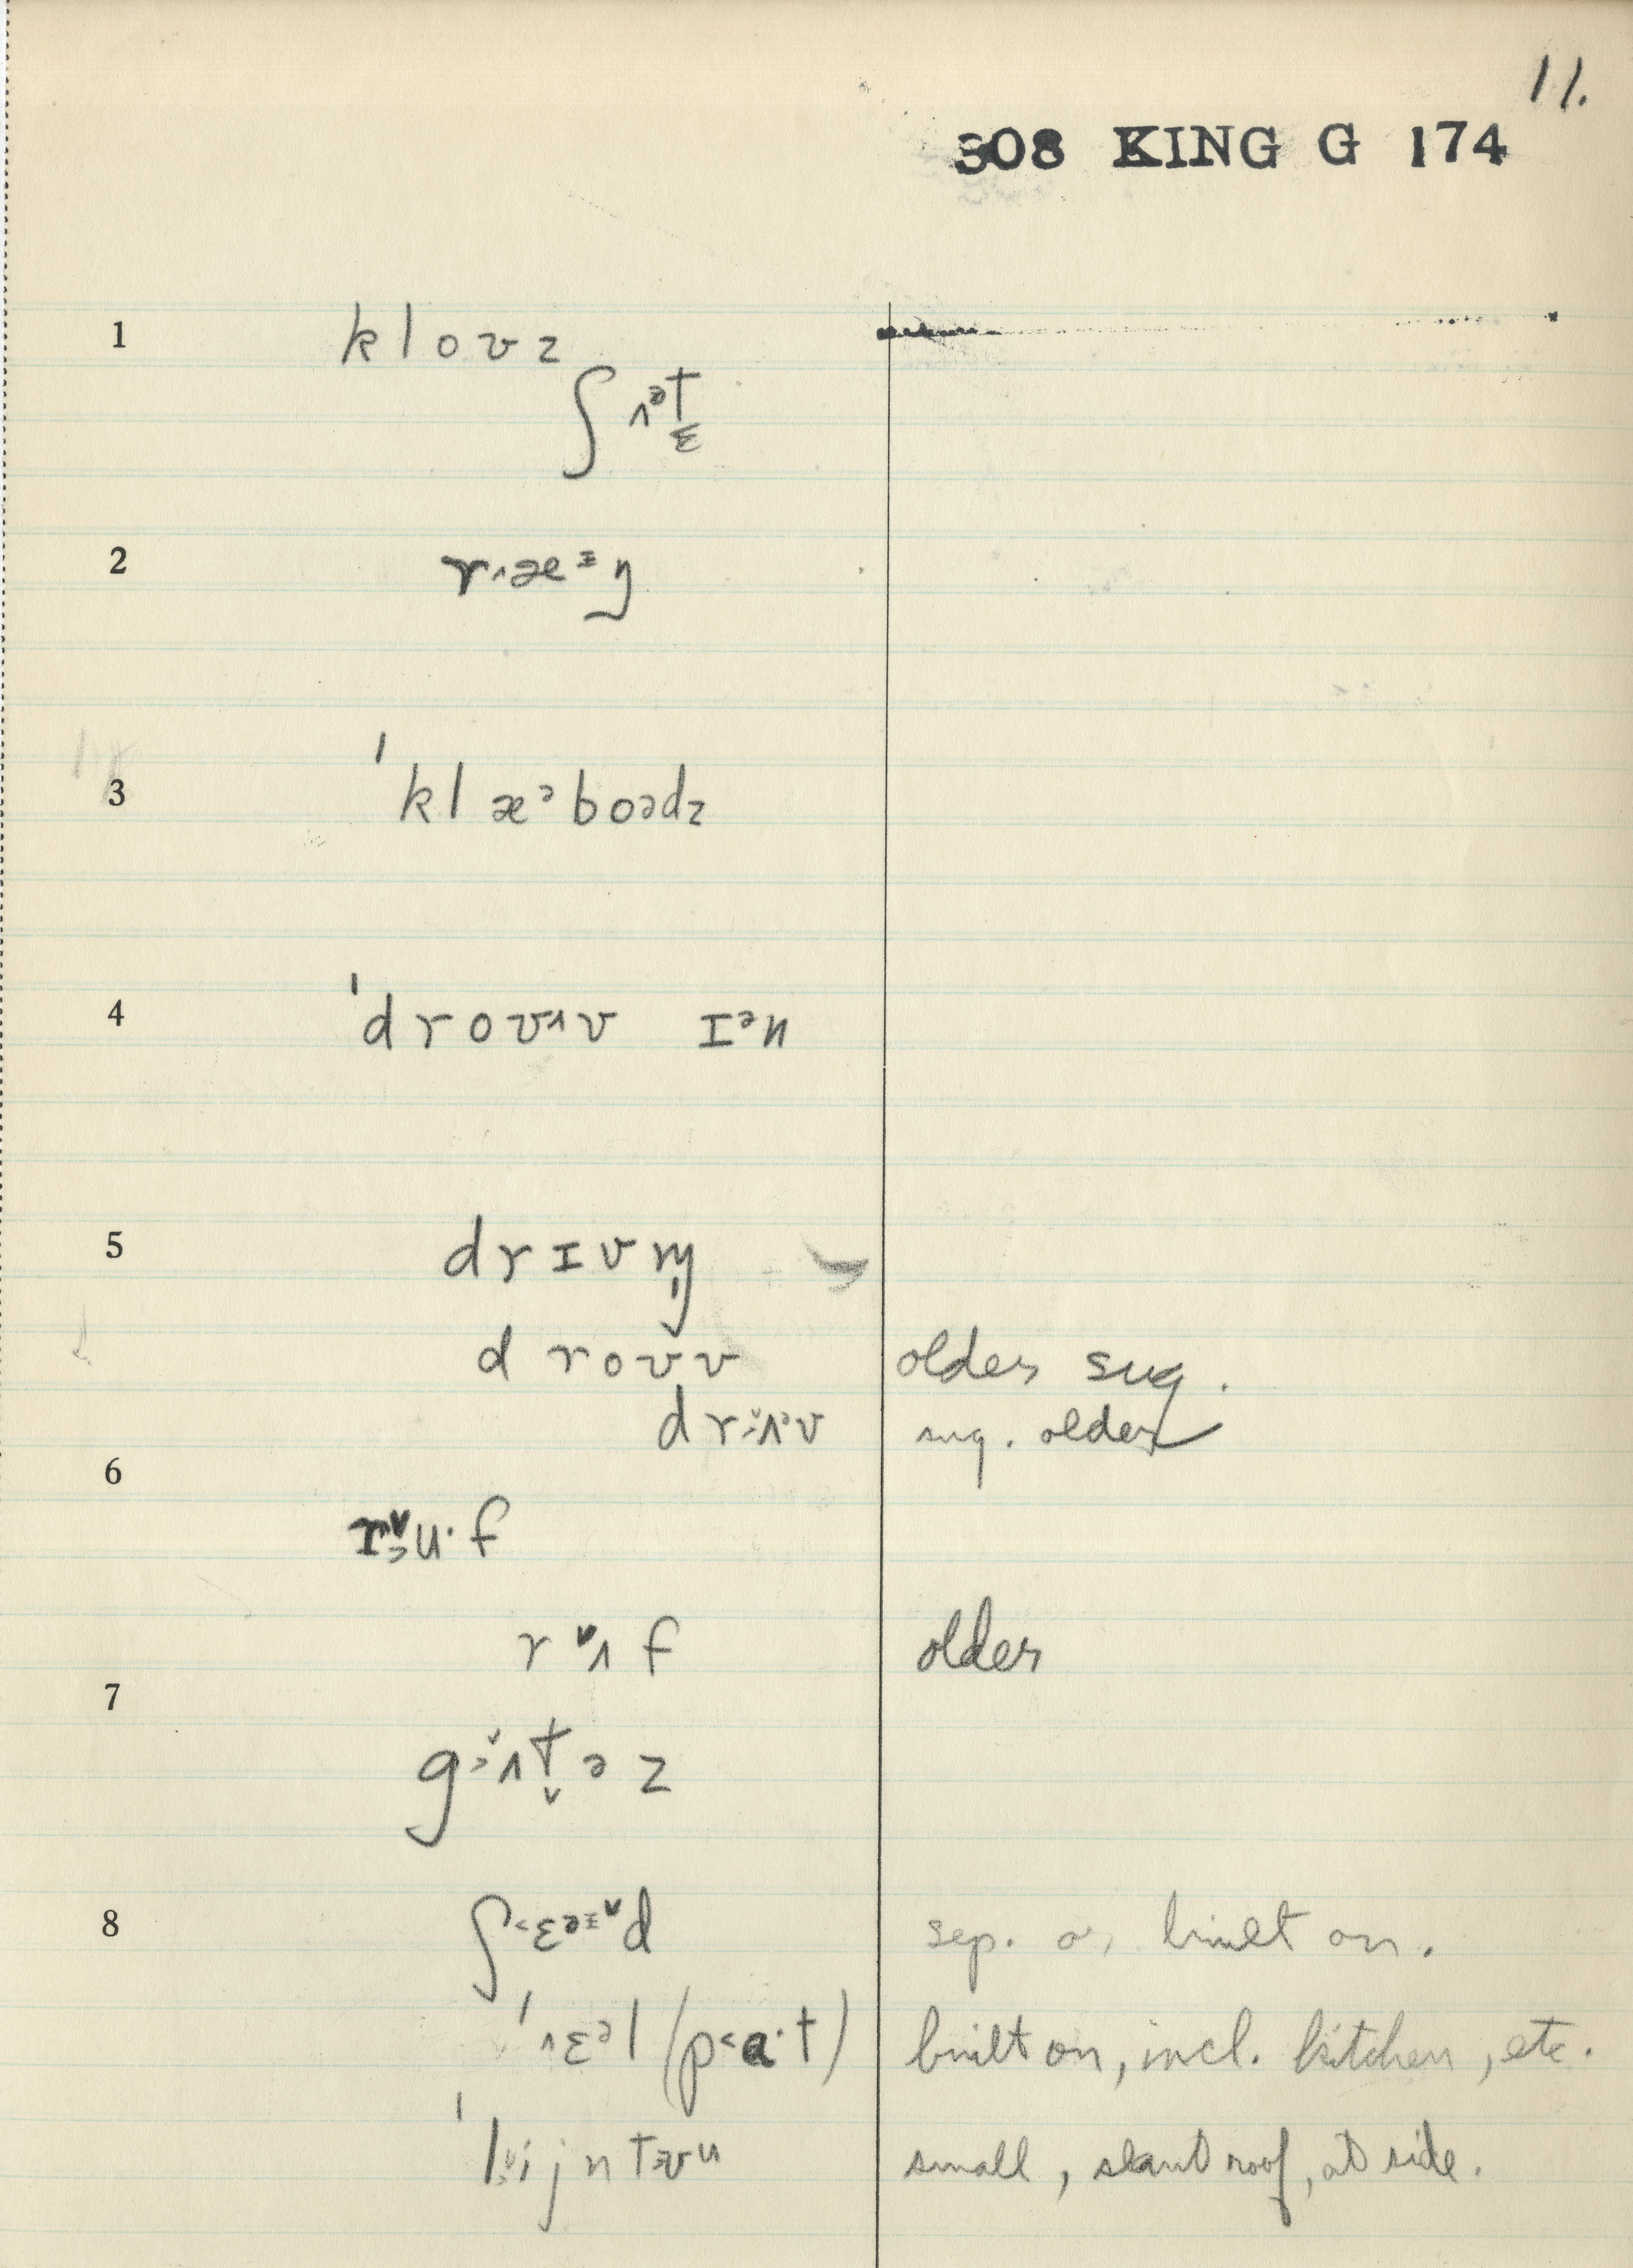 11.
308 KING G 174
1 klovz
ʃʌᵊt̬
2 r˄æᶧŋ
3 'klæᵊboədz
4 'drouʌv ɪᵊn
5 drɪvn̩
drovv older sug.
drʌᵊv sug. older
6
ru·f
rʌf older
7
gʌt̬əz
8 ʃ˂ɛᵊᶧd sep. or built on.
'˄ɛᵊl (p˂ɑ·t) built on, incl. kitchen, etc.
'lijntʊu small, slant roof, at side.